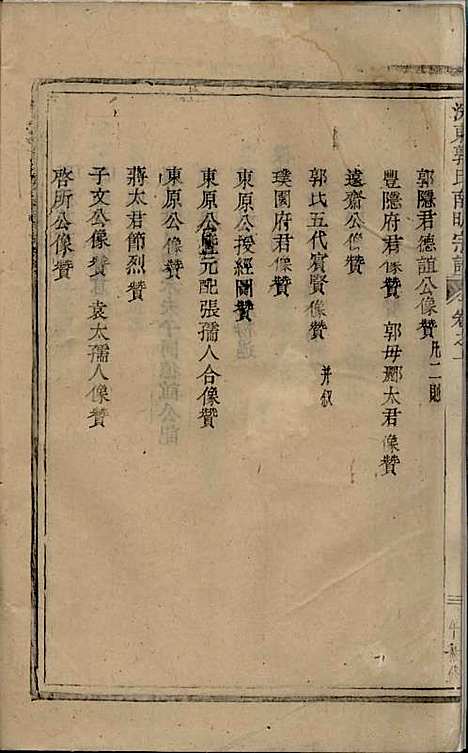 東郭氏南明宗譜 卷之一
郭隱君德誼公像贊 凡二則
豐隱府君像贊 郭毋鄜太君像贊
遠齋公像贊
郭氏五代賓賢像贊 并叙
璞園府君像贊
東原公授經圖贊
東原公暨元配張孺人合像贊
東原公像贊
蔣太君節烈贊
子文公像贊 袁太孺人像贊
啓所公像贊